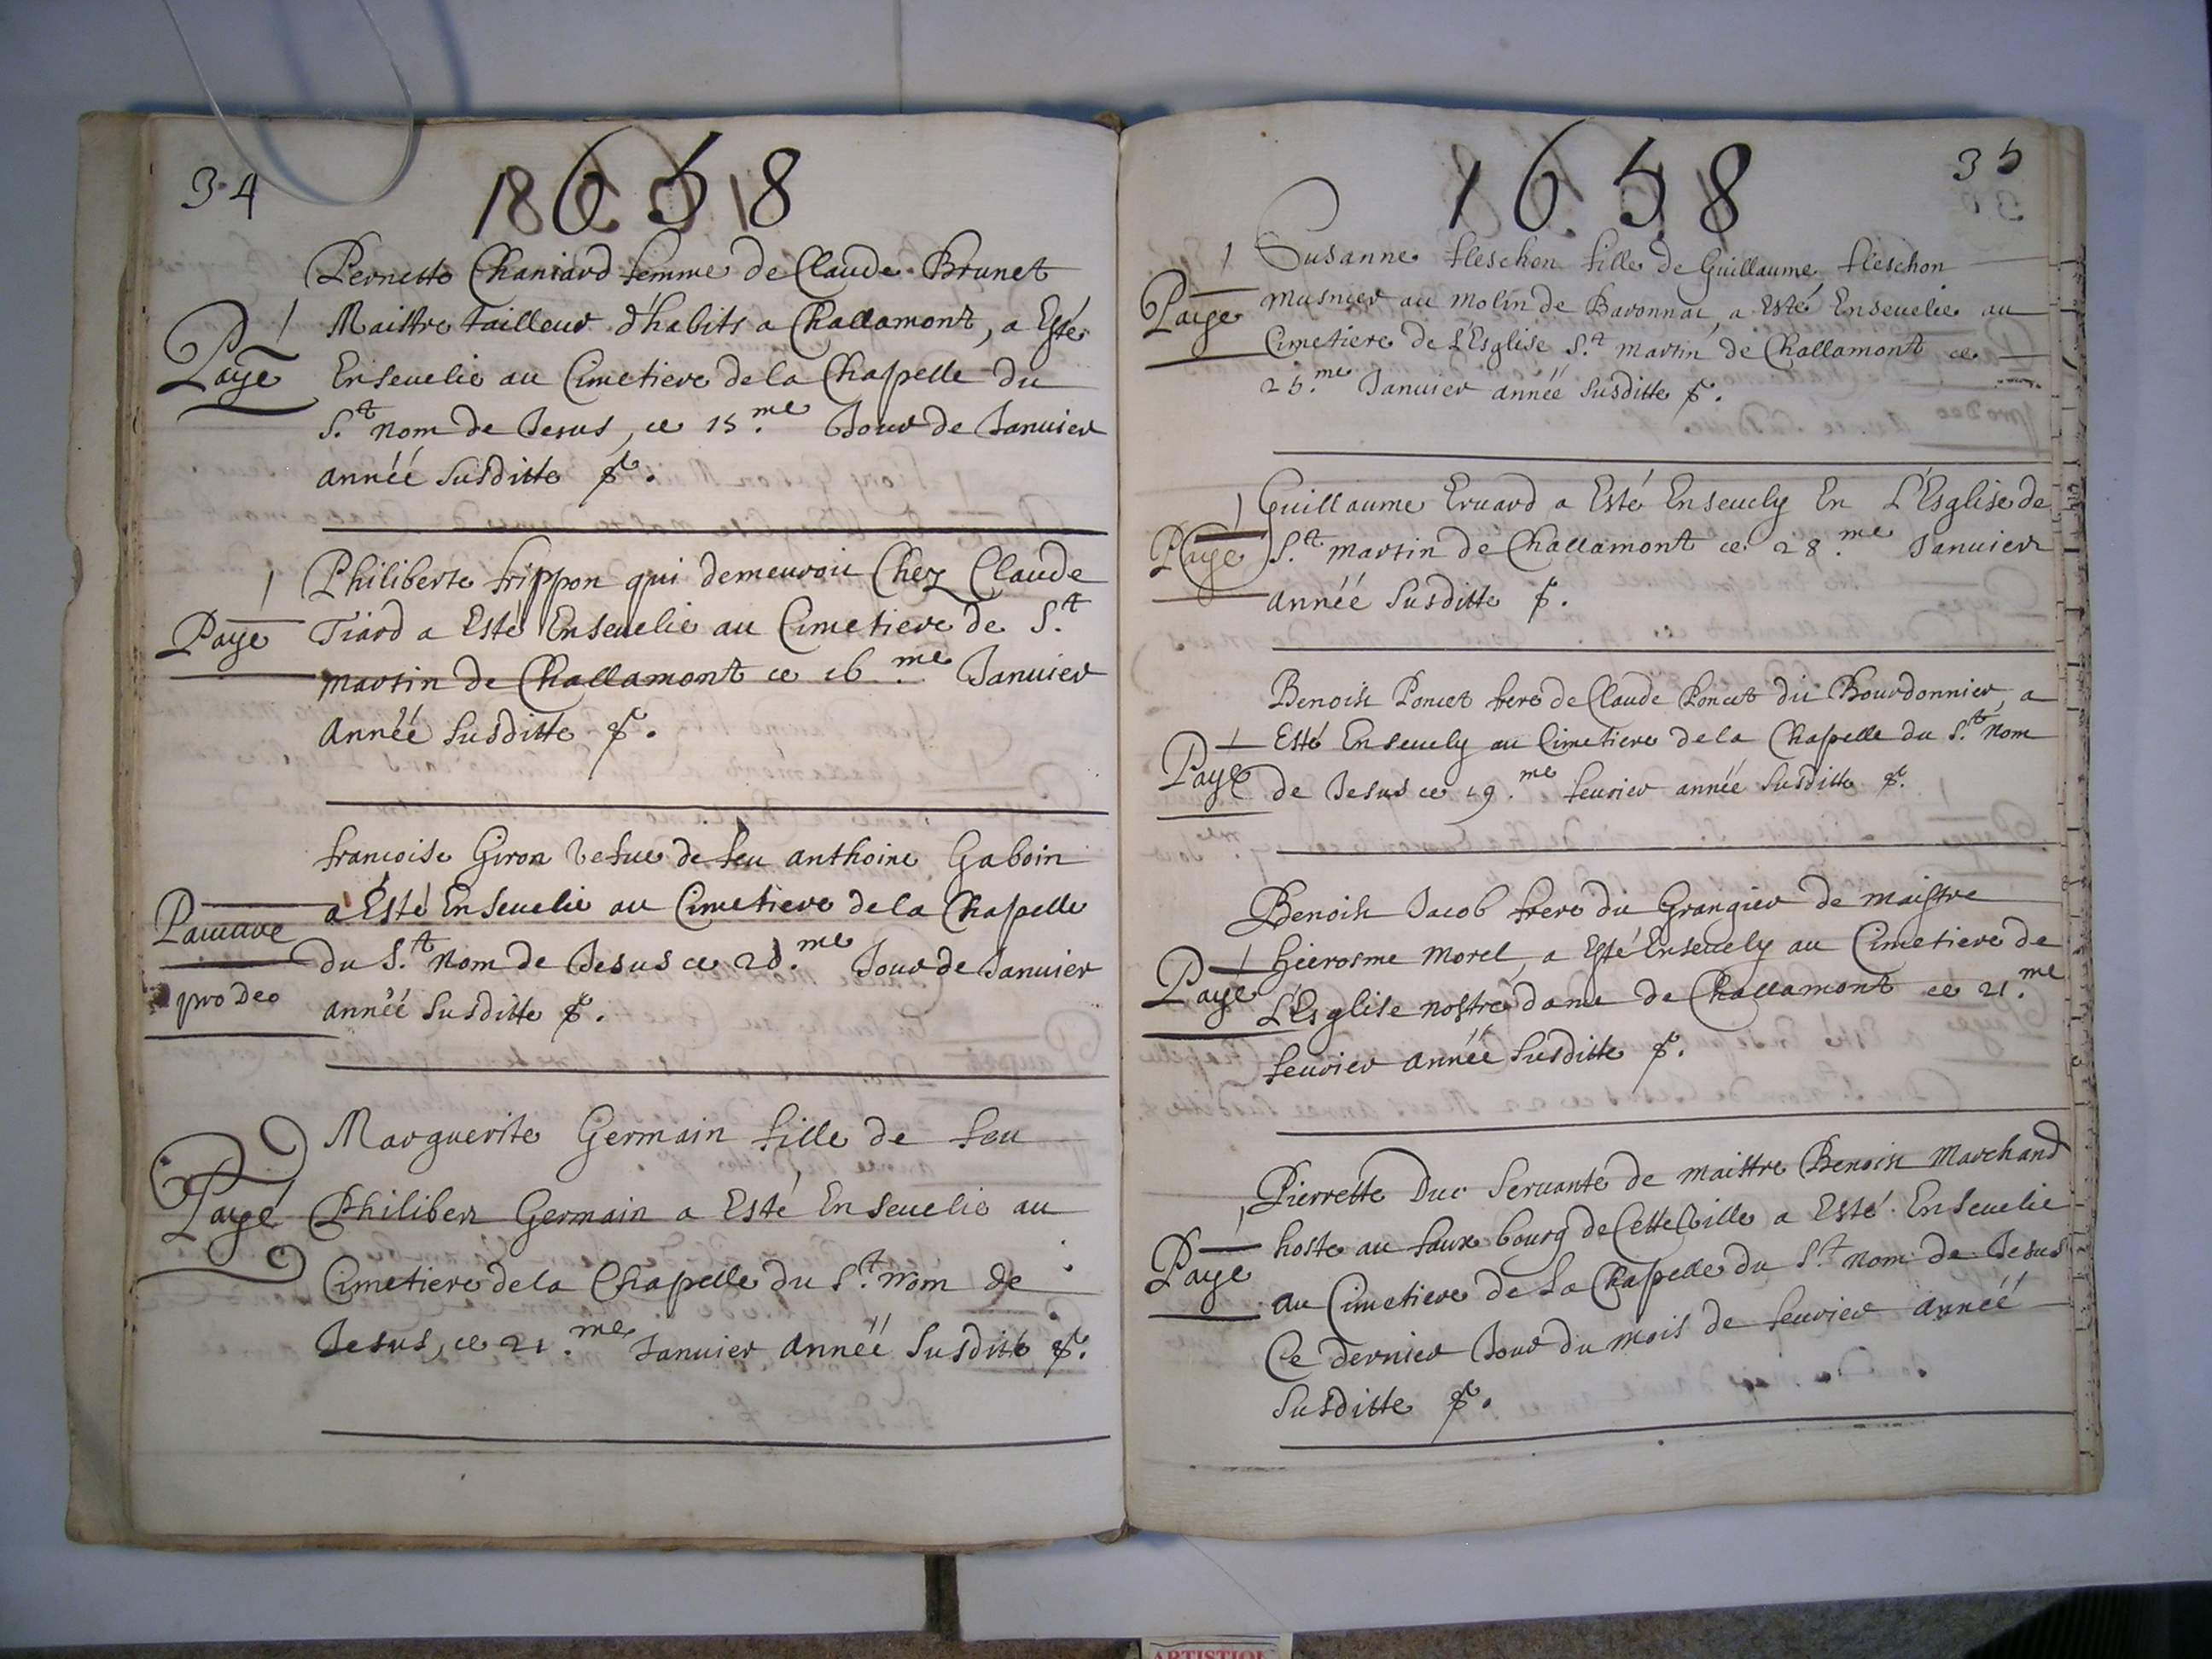 34
1658
Pernette Chaniard femme de Claude Brunet
Payé
Maistre tailleur d'habits a Challamont, a Esté
Enseuelie au Cimetiere de la Chapelle du
S.t nom de Jesus, ce 15.me Jour de Januier
année susditte
Philiberte frippon qui demeuroit Chez Claude
Payé
Tiard a Esté Enseuelie au Cimetiere de S.t
martin de Challamont ce 16.me Januier
Année susditte
francoise Giron vefue de feu anthoine Gaboin
Pauure
a Esté Enseuelie au Cimetiere de la Chapelle
du S.t Nom de Jesus ce .me Jour de Januier
pro Deo
année susditte
Marguerite Germain fille de feu
Payé
Philibert Germain a Esté Enseuelie au
Cimetiere de la Chapelle du S.t nom de
Jesus, ce 21.me Januier Année susditte
1658
35
Susanne fleschon fille de Guillaume fleschon
Payé
musnier au molin de Baronnat, a Esté Enseuelie au
Cimetiere de L'Esglise S.t martin de Challamont ce
25.me Januier année susditte
Guillaume Eruard a Esté Enseuely En L'Esglise de
Payé
S.t martin de Challamont ce 28.me Januier
année susditte
Benoist Poncet frere de Claude Poncet dit Bourdonnier, a
Payé
Esté Enseuely au Cimetiere de la Chapelle du S.t Nom
de Jesus ce 19.me feurier année susditte
Benoist Jacob frere du Grangier de maistre
Payé
hierosme morel, a Esté Enseuely au Cimetiere de
L'Esglise nostre dame de Challamont ce 21.me
feurier année susditte
Pierrette Duc Seruante de maistre Benoist Marchand
Payé
hoste au faux bourg de Cette Ville a Esté Enseuelie
au Cimetiere de La Chapelle du S.t nom de Jesus
Ce dernier Jour du mois de feurier année
susditte